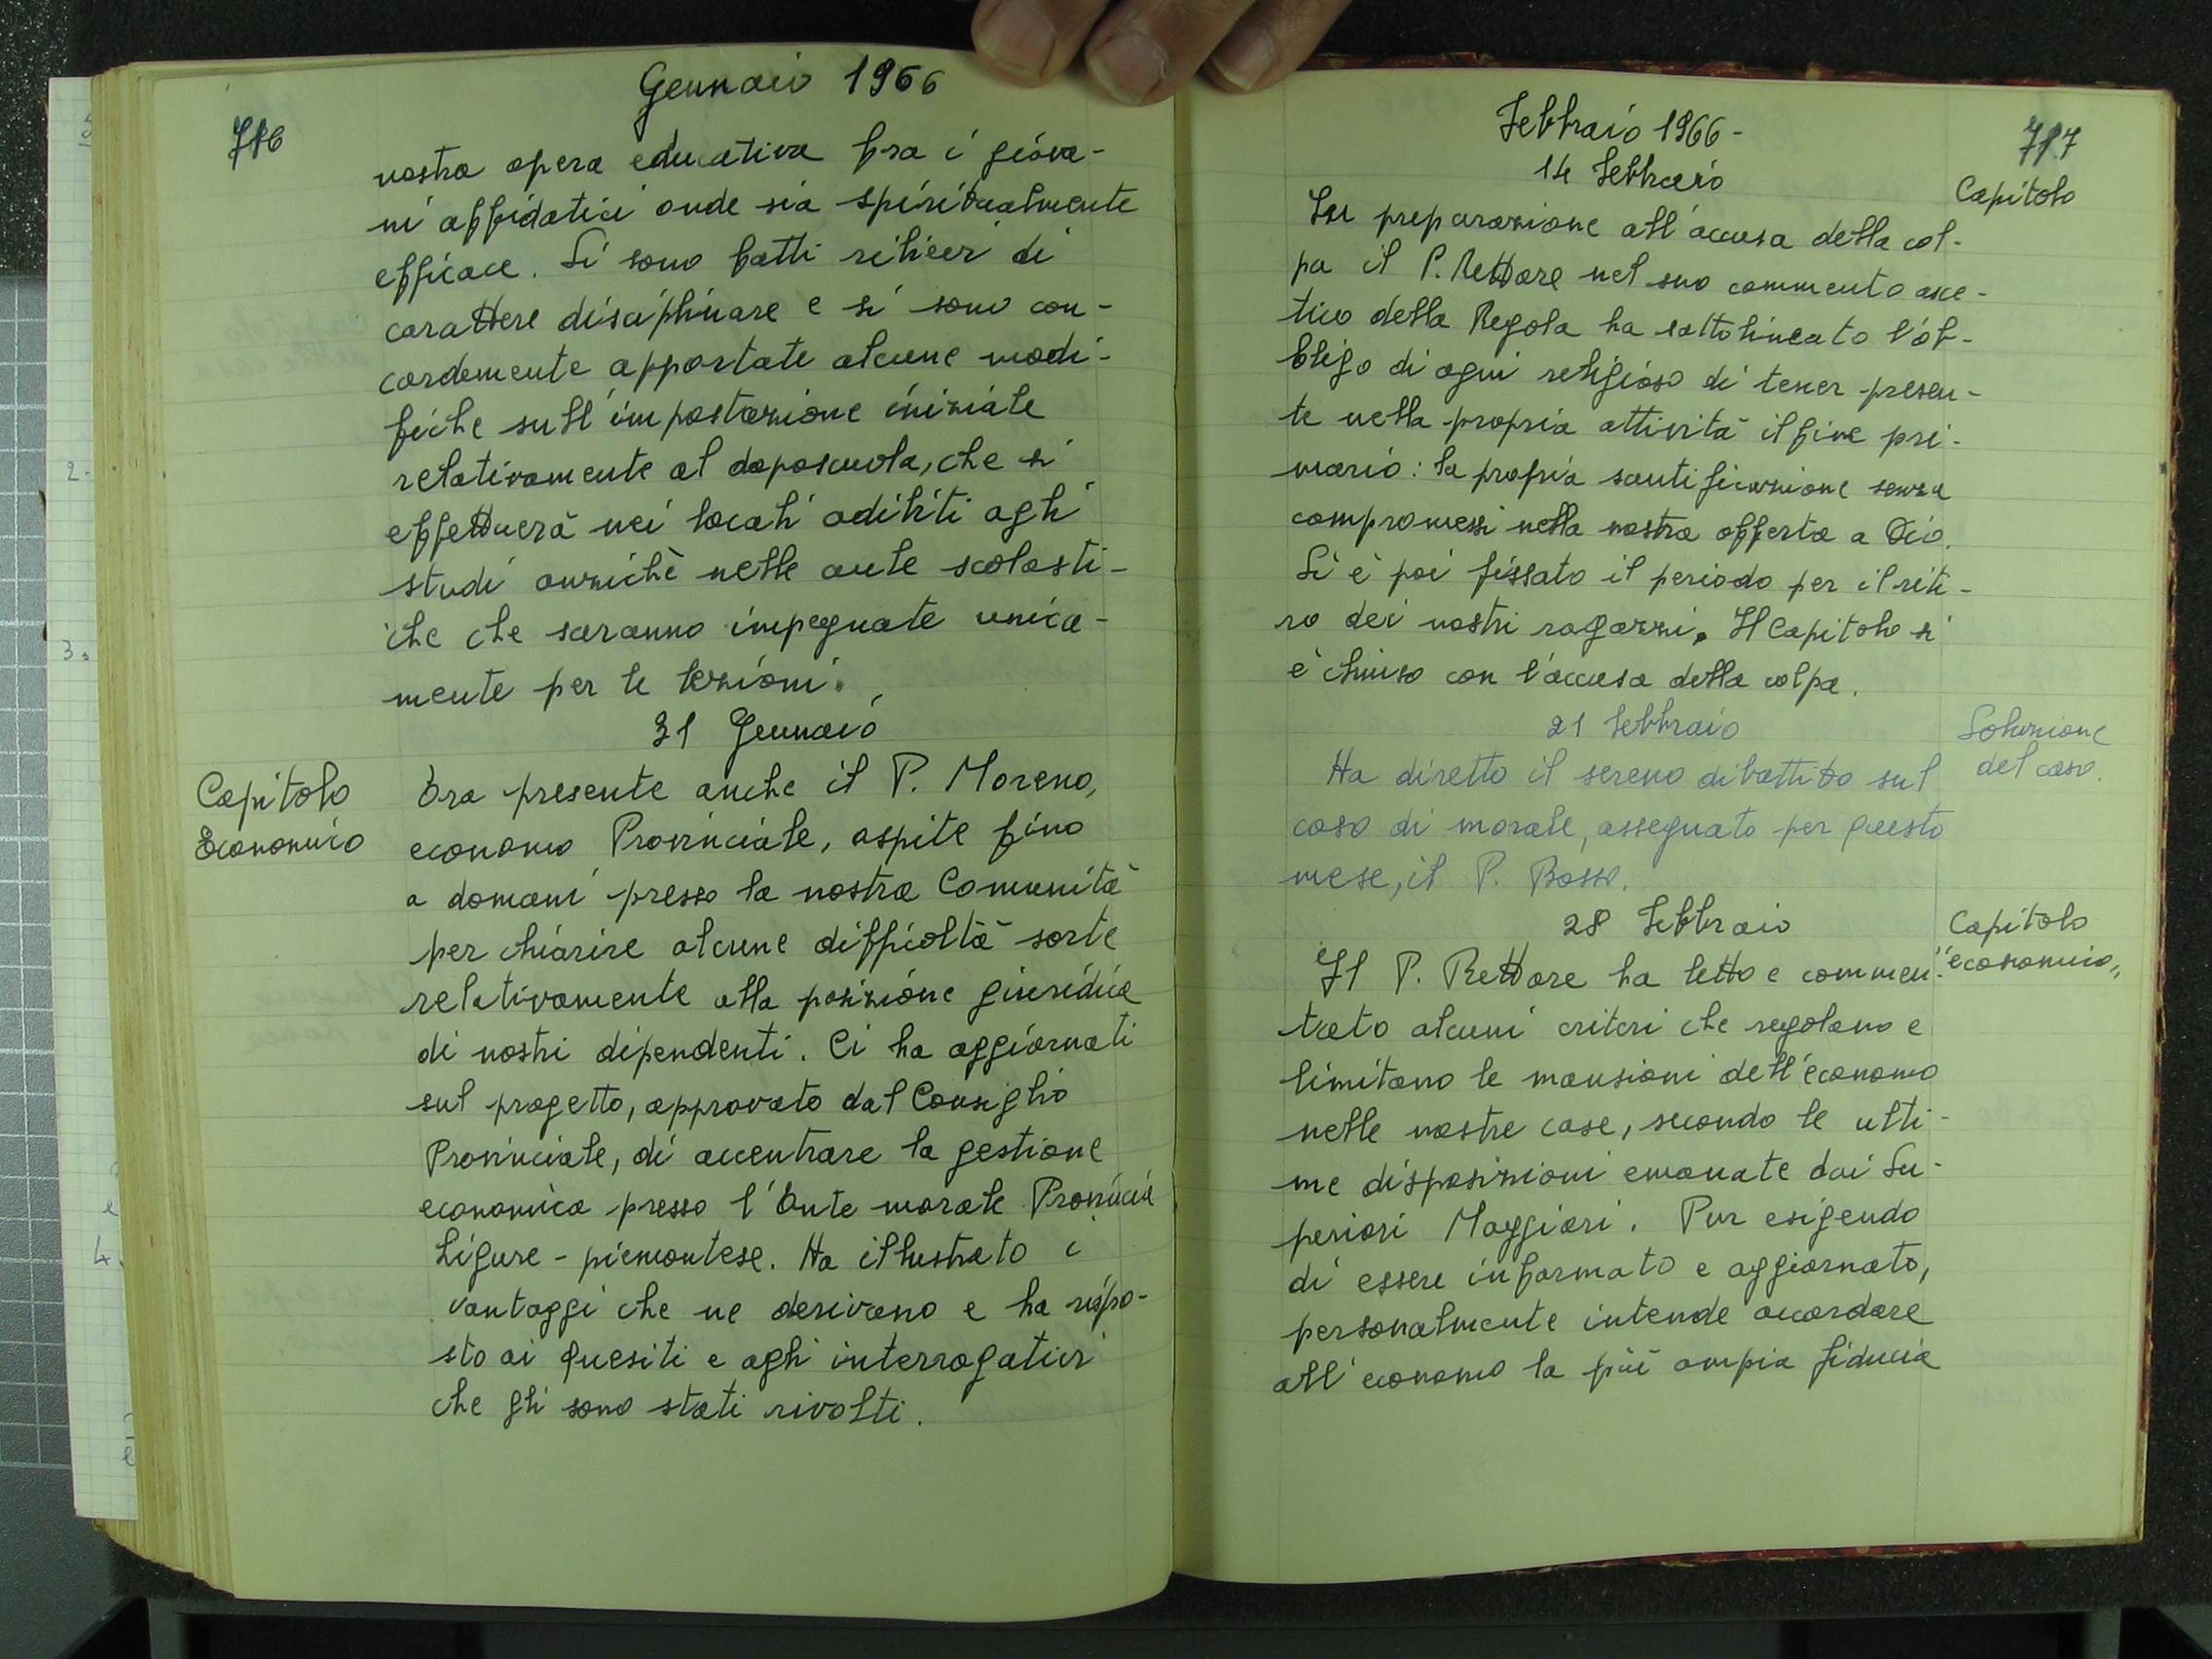 Gennaio 1966
716
nostra opera educativa fra i giova-
ni affidatici onde sia spiritualmente
efficace. Si sono fatti rilievi di
carattere disciplinare e si sono con-
cordemente apportate alcune modi-
fiche sull'impostazione iniziale
relativamente al doposcuola, che si
effettuerà nei locali adibiti agli
studi anziché nelle aule scolasti-
che che saranno impegnate unica-
mente per le lezioni.
31 Gennaio
Capitolo
Economico
Era presente anche il P. Moreno,
economo Provinciale, ospite fino
a domani presso la nostra Comunità
per chiarire alcune difficoltà sorte
relativamente alla posizione giuridica
di nostri dipendenti. Ci ha aggiornati
sul progetto, approvato dal Consiglio
Provinciale, di accentrare la gestione
economica presso l'Ente morale Provincia
Ligure - piemontese. Ha illustrato i
vantaggi che ne derivano e ha rispo-
sto ai quesiti e agli interrogativi
che gli sono stati rivolti.
Febbraio 1966 -
717
14 Febbraio
Capitolo
In preparazione all'accusa della col-
pa il P. Rettore nel suo commento asce-
tico della Regola ha sottolineato l'ob-
bligo di ogni religioso di tener presen-
te nella propria attività il fine pri-
mario: la propria santificazione senza
compromessi nella nostra offerta a Dio.
Si è poi fissato il periodo per il riti-
ro dei nostri ragazzi. Il Capitolo si
è chiuso con l'accusa della colpa.
21 Febbraio
Soluzione
del caso.
Ha diretto il sereno dibattito sul
caso di morale, assegnato per questo
mese, il P. Bosso.
28 Febbraio
Capitolo
"economico„
Il P. Rettore ha letto e commen-
tato alcuni criteri che regolano e
limitano le mansioni dell'economo
nelle nostre case, secondo le ulti-
me disposizioni emanate dai Su-
periori Maggiori. Pur esigendo
di essere informato e aggiornato,
personalmente intende accordare
all'economo la più ampia fiducia